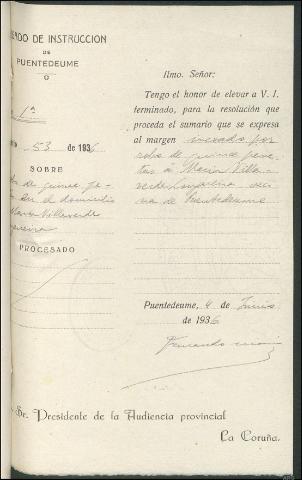 DO DE INSTRUCCION
DE
PUENTEDEUME
1ª
53 de 1936
SOBRE
de quince pe-
en el domicilio
Maria Villaverde
PROCESADO
Ilmo. Señor:
Tengo el honor de elevar a V. I.
terminado, para la resolución que
proceda el sumario que se expresa
al margen incoado por
robo de quince pese-
tas á Maria Villa-
verde veci-
na de Puentedeume
Puentedeume, 4 de Junio
de 1936
Fernando
Sr. Presidente de la Audiencia provincial
La Coruña.